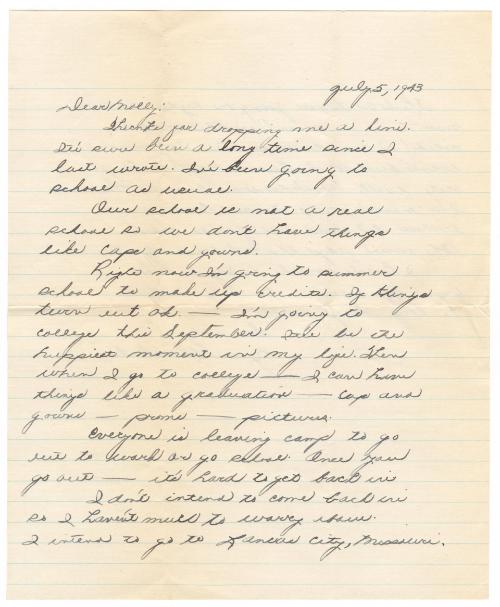 July 5, 1943
Dear Molly:
Thanks for dropping me a line.
It's sure been a long time since I
last wrote. I've been going to
school as usual.
Our school is not a real
school so we don't have things
like caps and gowns.
Right now I'm going to summer
school to make up credits. If things
turn out Ok. — I'm going to
college this September. It'll be the
happiest moment in my life. Then
when I go to college — I can have
things like a graduation — cap and
gowns — proms — pictures.
Everyone is leaving camp to go
out to work or go school. Once you
go out — it's hard to get back in
I don't intend to come back in
so I haven't much to worry about.
I intend to go to Kansas City, Missouri.